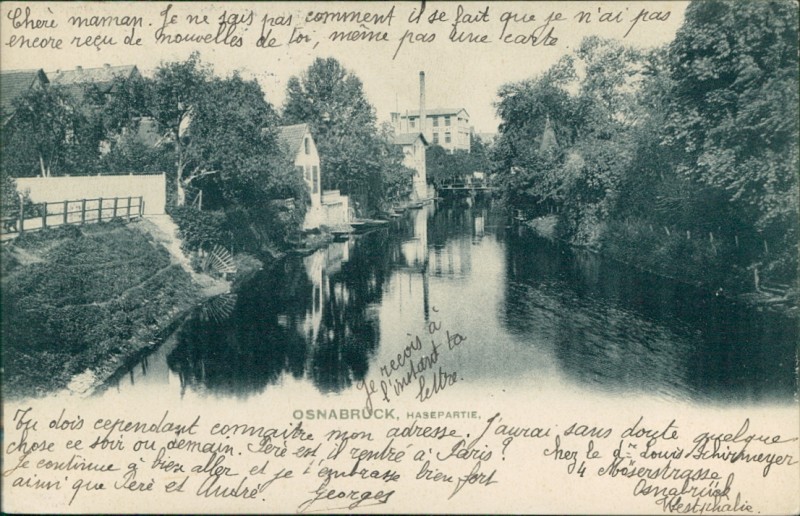 Chère maman. Je ne sais pas comment il se fait que je n'ai pas
encore reçu de nouvelles de toi, même pas une carte
Je reçois à
l'instant ta
lettre.
OSNABRÜCK, HASEPARTIE.
Tu dois cependant connaitre mon adresse. J'aurai sans doute quelque
chose ce soir ou demain. Péré est, il rentré à Paris?
Je continue à bien aller et je t'embrasse bien fort
ainsi que Péré et André. Georges
chez le d. Louis Schirmeyer
4 Möserstrasse
Osnabrück
Westphalie.